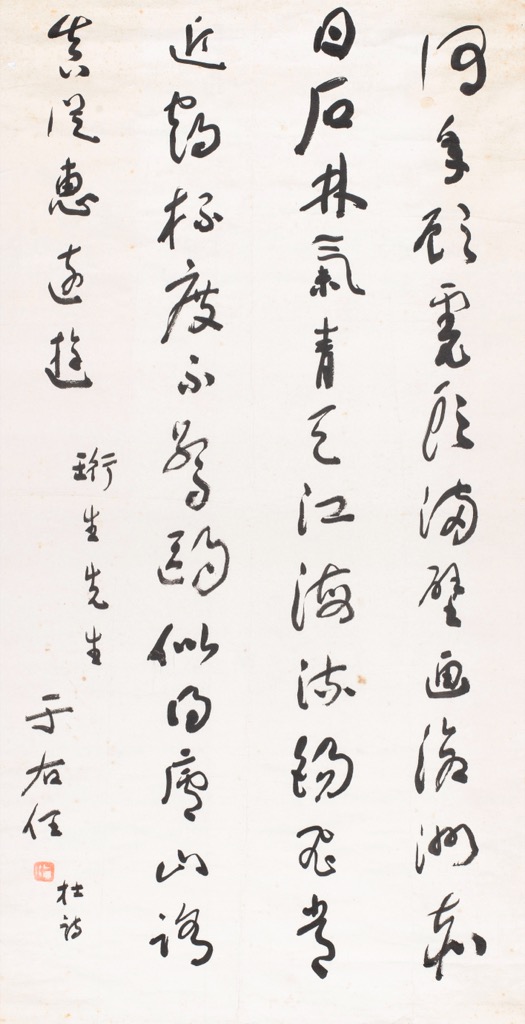 何年顧虎頭滿壁画滄洲赤
日石林氣青天江海流錫飛常
近鶴杯度不驚鷗似得廬山路
真從惠遠遊
珩生先生
于右任
杜詩